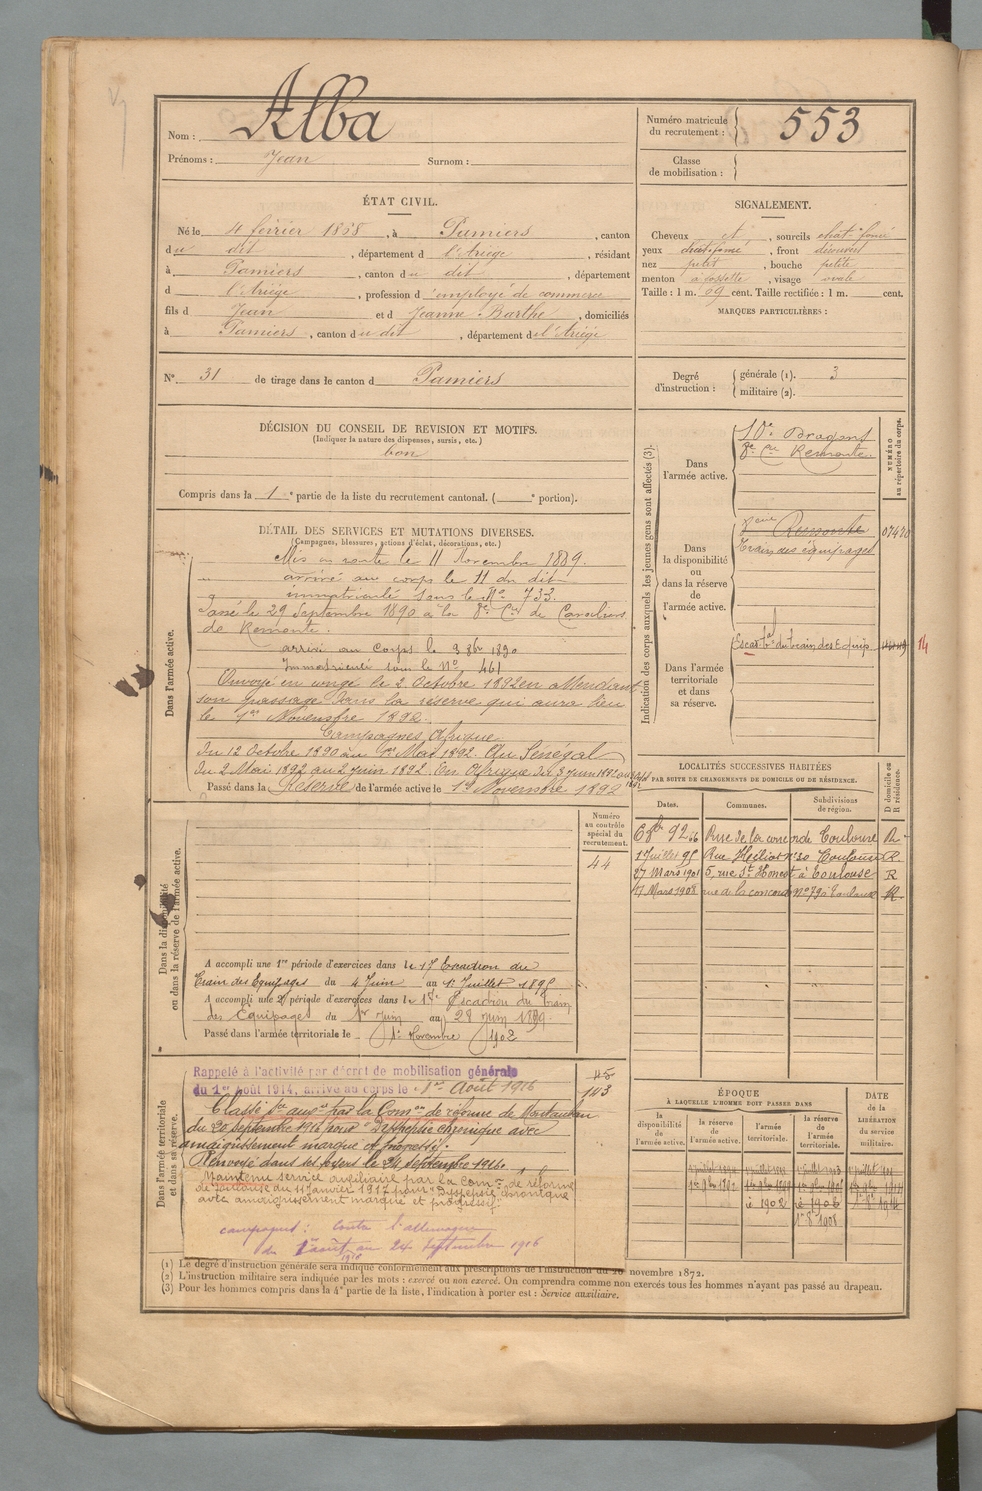 Nom : Alba
Prénoms : Jean Surnom :
Numéro matricule du recrutement : 553
Classe de mobilisation :
ÉTAT CIVIL.
Né le 4 février 1868, à Pamiers, canton
du dit, département d l'Ariège, résidant
à Pamiers, canton du dit, département
d l'Ariège, profession d'employé de commerce
fils d Jean et d Jeanne Barthe, domiciliés
à Pamiers, canton du dit, département d l'Ariège
SIGNALEMENT.
Cheveux et, sourcils chat-foncé
yeux chat-foncé, front découvert
nez petit, bouche petite
menton à fossette, visage ovale
Taille : 1 m. 69 cent. Taille rectifiée : 1 m. cent.
MARQUES PARTICULIÈRES :
N° 31 de tirage dans le canton d Pamiers
Degré d'instruction : générale (1). 3
militaire (2).
DÉCISION DU CONSEIL DE REVISION ET MOTIFS.
(Indiquer la nature des dispenses, sursis, etc.)
bon
Compris dans la 1e partie de la liste du recrutement cantonal. ( e portion).
DÉTAIL DES SERVICES ET MUTATIONS DIVERSES.
(Campagnes, blessures, actions d'éclat, décorations, etc.)
Dans l'armée active.
Mis en route le 11 Novembre 1889.
arrivé au corps le 11 du dit
immatriculé sous le N° 733.
Passé le 29 Septembre 1890 à la 8e Cie de Cavaliers
de Remonte.
arrivé au Corps le 3 8bre 1890
Immatriculé sous le N° 461
Envoyé en congé le 2 Octobre 1892 en attendant
son passage dans la réserve qui aura lieu
le 1er Novembre 1892.
Campagnes Afrique
du 12 Octobre 1890 au 1er Mai 1892. Au Sénégal
du 2 Mai 1892 au 2 juin 1892. En Afrique du 3 juin 1892 au
Passé dans la Réserve de l'armée active le 1er Novembre 1892
Indication des corps auxquels les jeunes gens sont affectés (3).
NUMÉRO au répertoire du corps.
Dans l'armée active.
10e Dragons
8e Cie Remonte.
Dans la disponibilité ou dans la réserve de l'armée active.
Remonte 07470
Train des équipages
Dans l'armée territoriale et dans sa réserve.
Escad. tal du train des Equip. 14
LOCALITÉS SUCCESSIVES HABITÉES
PAR SUITE DE CHANGEMENTS DE DOMICILE OU DE RÉSIDENCE.
D domicile ou R résidence.
Dates. Communes. Subdivisions de région.
6 9bre 92 Rue de la concorde 66 Toulouse R
1 Juillet 95 Rue Héliot n° 20 Toulouse R
27 Mars 1901 5, rue St Honest à Toulouse R
17 Mars 1908 rue de la concorde n° 79 à Toulouse R
Dans la disponibilité ou dans la réserve de l'armée active.
Numéro au contrôle spécial du recrutement.
44
A accompli une 1re période d'exercices dans le 17 Escadron du
Train des Equipages du 4 Juin au 1er Juillet 1895
A accompli une 2e période d'exercices dans le 17e Escadron du train
des Equipages du 1er Juin au 28 Juin 1899
Passé dans l'armée territoriale le 1er Novembre 1902
Dans l'armée territoriale et dans sa réserve.
Rappelé à l'activité par décret de mobilisation générale
du 1er Août 1914, arrivé au corps le 1er Août 1916
45
143
Classé Sce auxre par la Comon de réforme de Montauban
du 20 septembre 1916 pour Dyspepsie chronique avec
amaigrissement marqué et progressif.
Renvoyé dans ses foyers le 24 septembre 1916.
Maintenu service auxiliaire par la Comon de réforme
de Toulouse du 11 janvier 1917 pour "Dyspepsie chronique
avec amaigrissement marqué et progressif."
campagnes : contre l'allemagne
du 1er août 1916 au 24 septembre 1916
ÉPOQUE
À LAQUELLE L'HOMME DOIT PASSER DANS
DATE de la LIBÉRATION du service militaire.
la disponibilité de l'armée active. la réserve de l'armée active. l'armée territoriale. la réserve de l'armée territoriale.
1er 9bre 1892
1902
1906
1908
(1) Le degré d'instruction générale sera indiqué conformément aux prescriptions de l'instruction du 20 novembre 1872.
(2) L'instruction militaire sera indiquée par les mots : exercé ou non exercé. On comprendra comme non exercés tous les hommes n'ayant pas passé au drapeau.
(3) Pour les hommes compris dans la 4e partie de la liste, l'indication à porter est : Service auxiliaire.